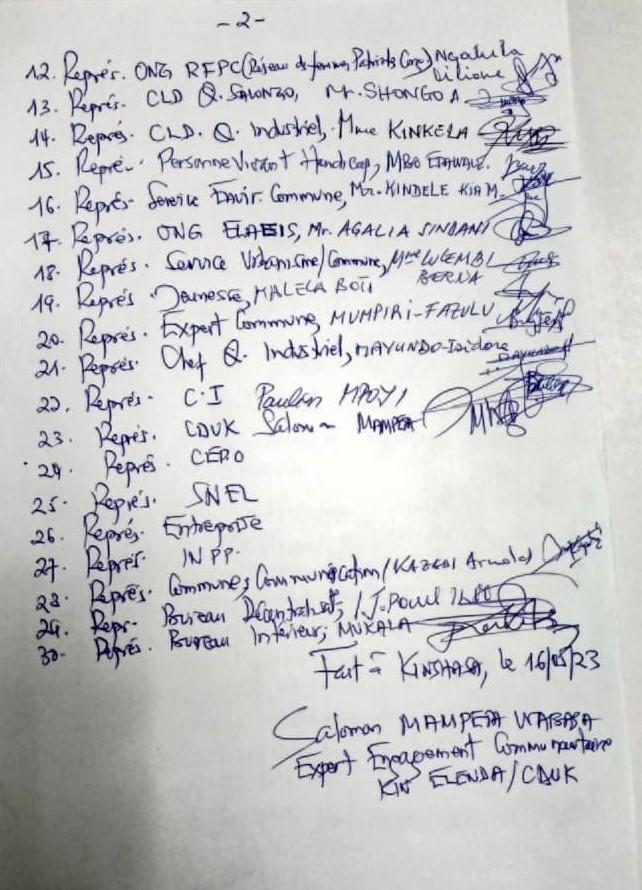 - 2 -
12. Représ. ONG RFPC (Réseau de femmes Patriots Congo) Ngalula
Liliane
13. Représ. CLD Q. SALONGO, Mr. SHONGO A
14. Représ. CLD. Q. Industriel, Mme KINKELA
15. Représ. Personne Vivant Handicap, MBO
16. Représ. Service Envir. Commune, Mr. KINDELE KIAM
17. Représ. ONG ELAEIS, Mr. AGALIA SINDANI
18. Représ. Service Urbanisme/Commune, Mme LUCEMBI
BERNA
19. Représ Jeunesse, MALELA BOTI
20. Représ. Expert Commune, MUMPIRI-FAZULU
21. Représ. Chef Q. Industriel, MAYUNDO-Isidore
22. Représ. C.I MPOYI
23. Représ. CDUK Salomon MAMPETA
24. Représ. CERO
25. Représ. SNEL
26. Représ. Entreprise
27. Représ. INPP.
28. Représ. Commune, Communication/KAZADI Arnold
29. Repr. Bureau /J. Paul ILEO
30. Représ. Bureau Intérieur, MUKALA
Fait à KINSHASA, le 16/05/23
Salomon MAMPETA WABASA
Expert Engagement Communautaire
KIN ELENDA/CDUK